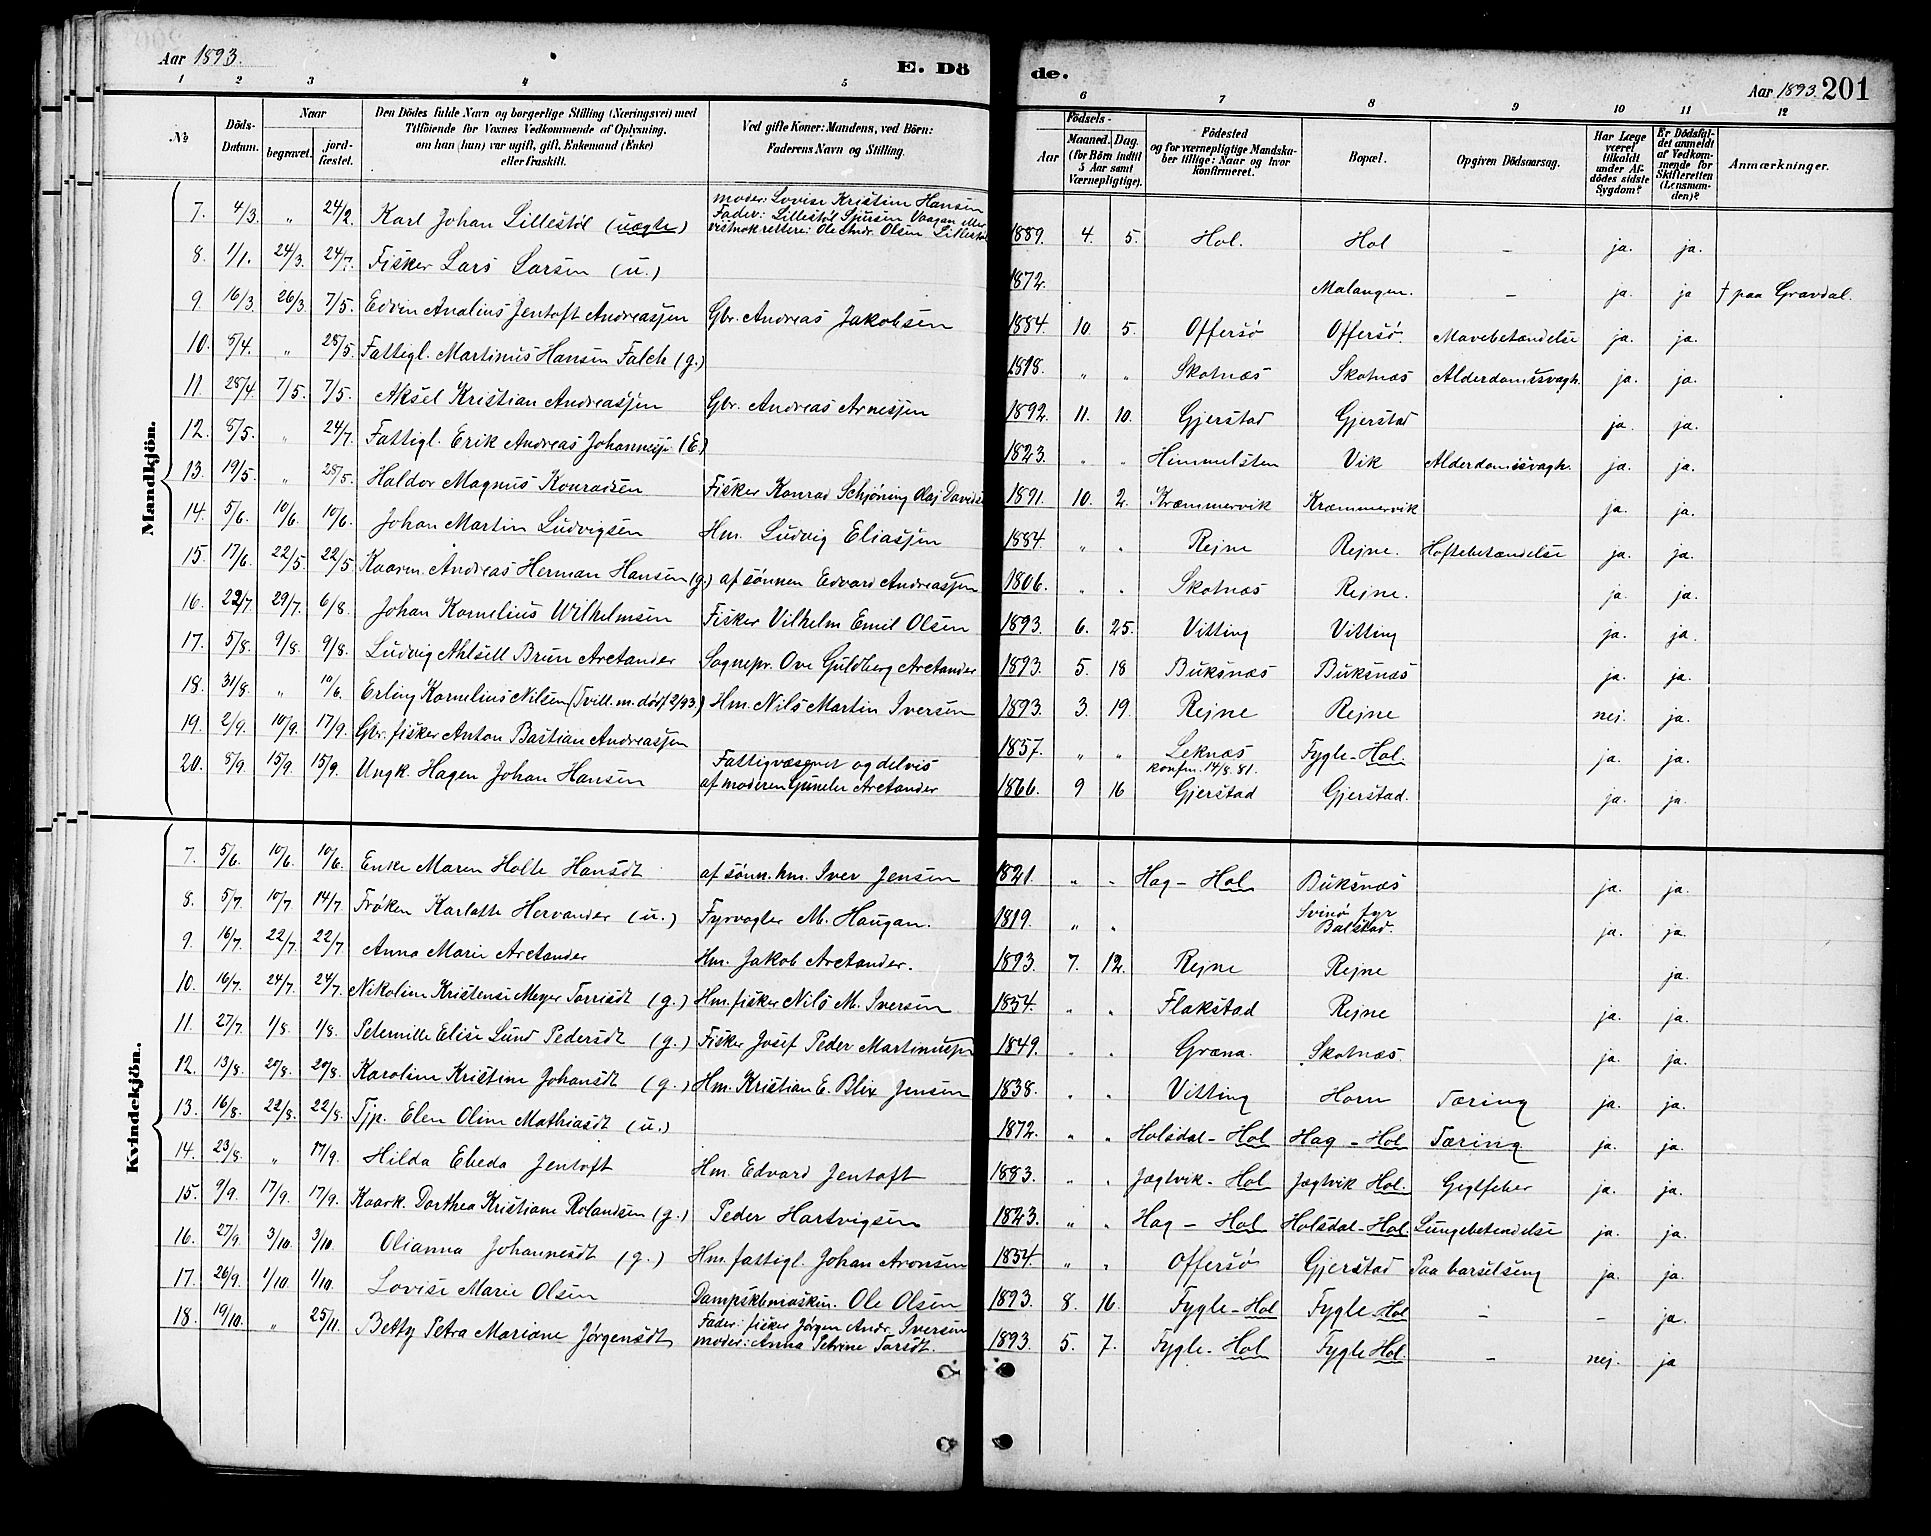 Aar 1893. E. Dö de. Aar 1893. 201
1 2 3 4 5 6 7 8 9 10 11 12
No
Döds-Datum.
Naar
begravet.
jord-fæstet.
Den Dödes fulde Navn og borgerlige Stilling (Næringsvei) med
Tilföiende for Voxnes Vedkommende af Oplysning,
om han (hun) var ugift, gift, Enkemand (Enke)
eller fraskilt.
Ved gifte Koner: Mandens, ved Börn:
Faderens Navn og Stilling.
Födsels-
Aar
Maaned. Dag.
(for Börn indtil
5 Aar samt
Værnepligtige).
Födested
og for værnepligtige Mandska-
ber tillige: Naar og hvor
konfirmeret.
Bopæl.
Opgiven Dödsaarsag.
Har Læge
været
tilkaldt
under Af-
dödes sidste
Sygdom?
Er Dödsfal-
det anmeldt
af Vedkom-
mende for
Skifteretten
(Lensman-
den)?
Anmærkninger.
Mandkjön.
7. 4/3. " 24/2. Karl Johan Lillestøl (uægte) moder: Lovise Kristine Hansen Fader: Lillestøl Sjursen Vaagan eller vistnok rettere: Ole Andr. Olsen Lillestøl 1889. 4. 5. Hol. Hol – ja. ja.
8. 1/1. 24/3. 24/7. Fisker Lars Larsen (u.) 1872. Malangen. – ja. ja † paa Gravdal.
9. 16/3. 26/3. 7/5. Edvin Analius Jentoft Andreassen Gbr. Andreas Jakobsen 1884. 10. 5. Offersø Offersø. Mavebetændelse ja. ja.
10. 5/4. " 28/5. Fattigl. Martinus Hansen Falch (g.) 1818. " " Skotnæs Skotnæs Alderdomssvagh. ja. ja.
11. 28/4. 7/5. 7/5. Aksel Kristian Andreassen Gbr. Andreas Arnessen 1892. 11. 10. Gjerstad Gjerstad ja. ja.
12. 5/5. " 24/7. Fattigl. Erik Andreas Johannessn (E.) 1823. " " Himmelsten Vik Alderdomssvagh. ja. ja.
13. 19/5. " 28/5. Haldor Magnus Konradsen Fisker Konrad Schjøning Olaj Davids 1891. 10. 2. Kræmmervik Kræmmervik ja. ja.
14. 5/6. 10/6. 10/6. Johan Martin Ludvigsen Hm. Ludvig Eliassen 1884. " " Rejne Rejne. Hoftebetændelse ja. ja.
15. 17/6. 22/5. 22/5 Kaarm. Andreas Herman Hansen (g.) af sønnen Edvard Andreassen 1806. " " Skotnæs Rejne. ja. ja.
16. 22/7 29/7. 6/8. Johan Kornelius Wilhelmsen Fisker Vilhelm Emil Olsen 1893. 6. 25. Vitting Vitting ja. ja.
17. 5/8. 9/8. 9/8. Ludvig Ahlsell Brun Arctander Sognepr. Ove Guldberg Arctander 1893. 5. 18 Buksnæs Buksnæs ja. ja.
18. 31/8. " 10/6. Erling Kornelius Nilsen (Tvill. m. død 1/2/93.) Hm. Nils Martin Iversen 1893. 3. 19. Rejne Rejne nej. ja.
19. 2/9. 10/9. 17/9. Gbr. fisker Anton Bastian Andreassen 1857. " " Leknæs Fygle-Hol. ja. ja.
20. 5/9. 15/9. 15/9. Ungk. Hagen Johan Hansen Fattigvæsenet og delvis af moderen Arctander 1866. 9 16 konfm. 14/8. 81. Gjerstad Gjerstad. ja. ja.
Kvindekjön.
7. 5/6. 10/6. 10/6. Enke Maren Holte Hansdt af sønn. hm. Iver Jensen 1821. " " Hag – Hol Buksnæs ja. ja.
8. 5/7. 10/7 14/7 Frøken Karlotte Hervander (u.) Fyrvogter M. Haugan. 1819. " " Svinø fyr Balstad. ja. ja.
9. 16/7. 22/7. 22/7. Anna Marie Arctander Hm. Jakob Arctander. 1893. 7. 12. Rejne Rejne ja.
10. 16/7. 24/7. 24/7. Nikoline Kristense Meyer Torrisdt (g.) Hm. fisker Nils M. Iversen 1854. " " Flakstad Rejne ja. ja.
11. 27/7. 1/8. 1/8. Peternille Elise Lund Pedersdt (g.) Fisker Josef Peder Martinussn 1849. " " Græna. Skotnæs. ja. ja.
12. 13/8. 20/8. 20/8. Karoline Kristine Johansdt (g.) Hm. Kristian E. Blix Jensen 1838. " " Vitting Horn Tæring ja. ja.
13. 16/8. 22/8. 22/8. Tjp. Elen Oline Mathiasdt (u.) 1872. " " Holsdal-Hol Hag-Hol Tæring ja. ja.
14. 23/8. " 17/9. Hilda Eheda Jentoft Hm. Edvard Jentoft 1883. " " Jægtvik-Hol Jægtvik Hol. Gigtfeber ja. ja.
15. 9/9. 17/9. 17/9. Kaark. Dorthea Kristiane Rolandsen (g.) Peder Hartvigsen 1823. " " Hag – Hol Holsdal-Hol Lungebetendelse ja. ja.
16. 27/9. 3/10. 3/10. Olianna Johannesdt (g.) Hm. fattigl. Johan Aronsen 1854. " " Offersø Gjerstad Paa barselseng ja. ja.
17. 26/9. 1/10. 1/10. Lovise Marie Olsen Dampskbmaskin. Ole Olsen 1893. 8. 16. Fygle-Hol Fygle-Hol – – ja.
18. 19/10. " 25/11. Betty Petra Mariane Jørgensdt Fader: fisker Jørgen Andr. Iversen moder: Anna Petrine Torsdt. 1893. 5. 7. Fygle-Hol Fygle Hol. – nej. ja